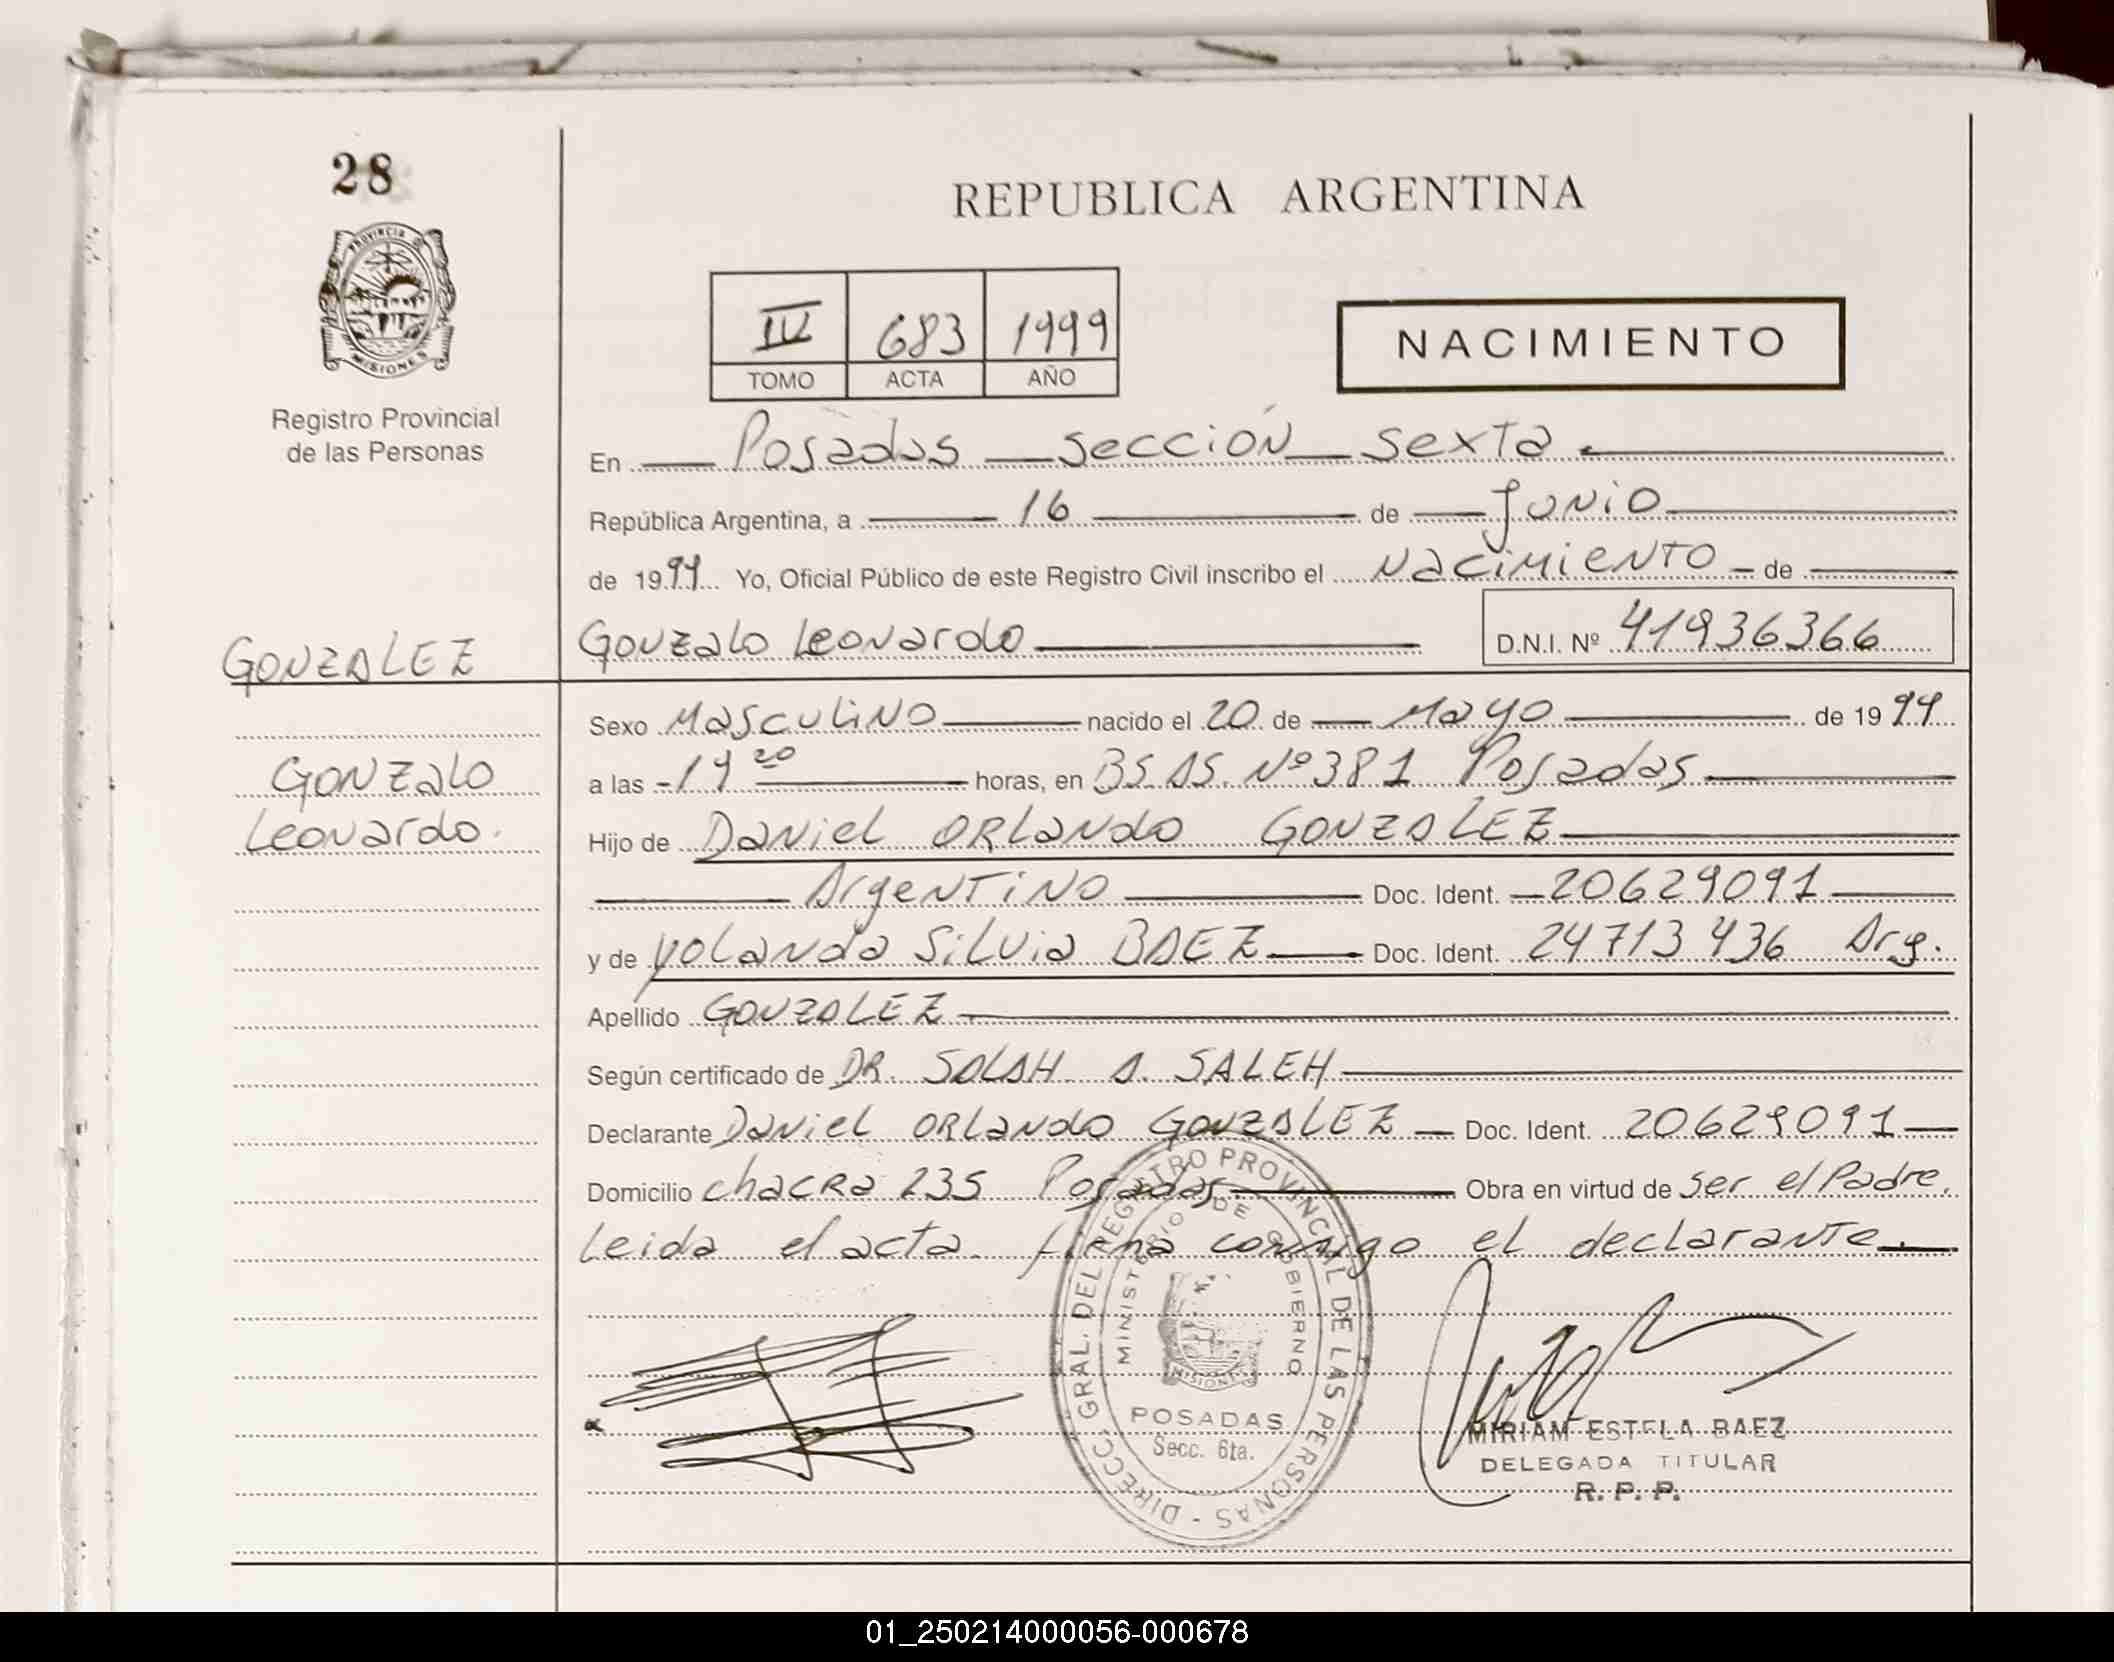 28
PROVINCIA D
MISIONES
Registro Provincial
de las Personas
REPUBLICA ARGENTINA
IV 683 1999
TOMO ACTA AÑO
NACIMIENTO
En Posadas sección sexta
República Argentina, a 16 de Junio
de 1999 Yo, Oficial Público de este Registro Civil inscribo el Nacimiento de
GONZALEZ
Gonzalo Leonardo
D.N.I. Nº 41936366
Sexo Masculino nacido el 20 de Mayo de 1999
Gonzalo
Leonardo.
a las 19 20 horas, en BS.AS. Nº 381 Posadas
Hijo de Daniel Orlando GONZALEZ
Argentino Doc. Ident. 20629091
y de Yolanda Silvia BAEZ Doc. Ident. 24713436 Arg.
Apellido GONZALEZ
Según certificado de DR. SALAH A. SALEH
Declarante Daniel Orlando GONZALEZ Doc. Ident. 20629091
Domicilio chacra 235 Posadas Obra en virtud de ser el Padre,
Leida el acta firma conmigo el declarante.
DIRECC. GRAL. DEL REGISTRO PROVINCIAL DE LAS PERSONAS -
MINISTERIO DE GOBIERNO
MISIONES
POSADAS
Secc. 6ta.
MIRIAM ESTELA BAEZ
DELEGADA TITULAR
R. P. P.
01_250214000056-000678